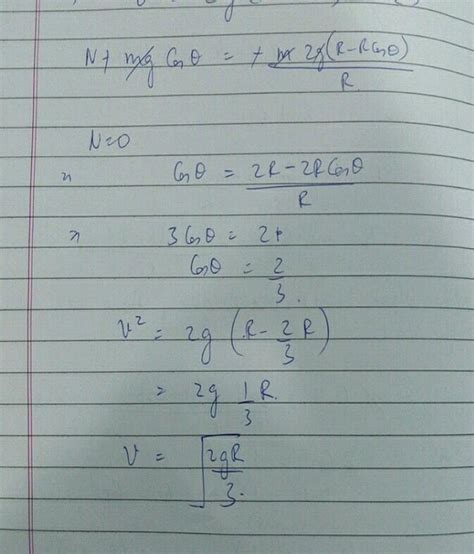 N + mg Cos θ = + m 2g(R - R Cos θ) / R
N = 0
Cos θ = 2R - 2R Cos θ / R
3 Cos θ = 2
Cos θ = 2/3.
v² = 2g (R - 2/3 R)
= 2g 1/3 R.
v = √(2gR/3).